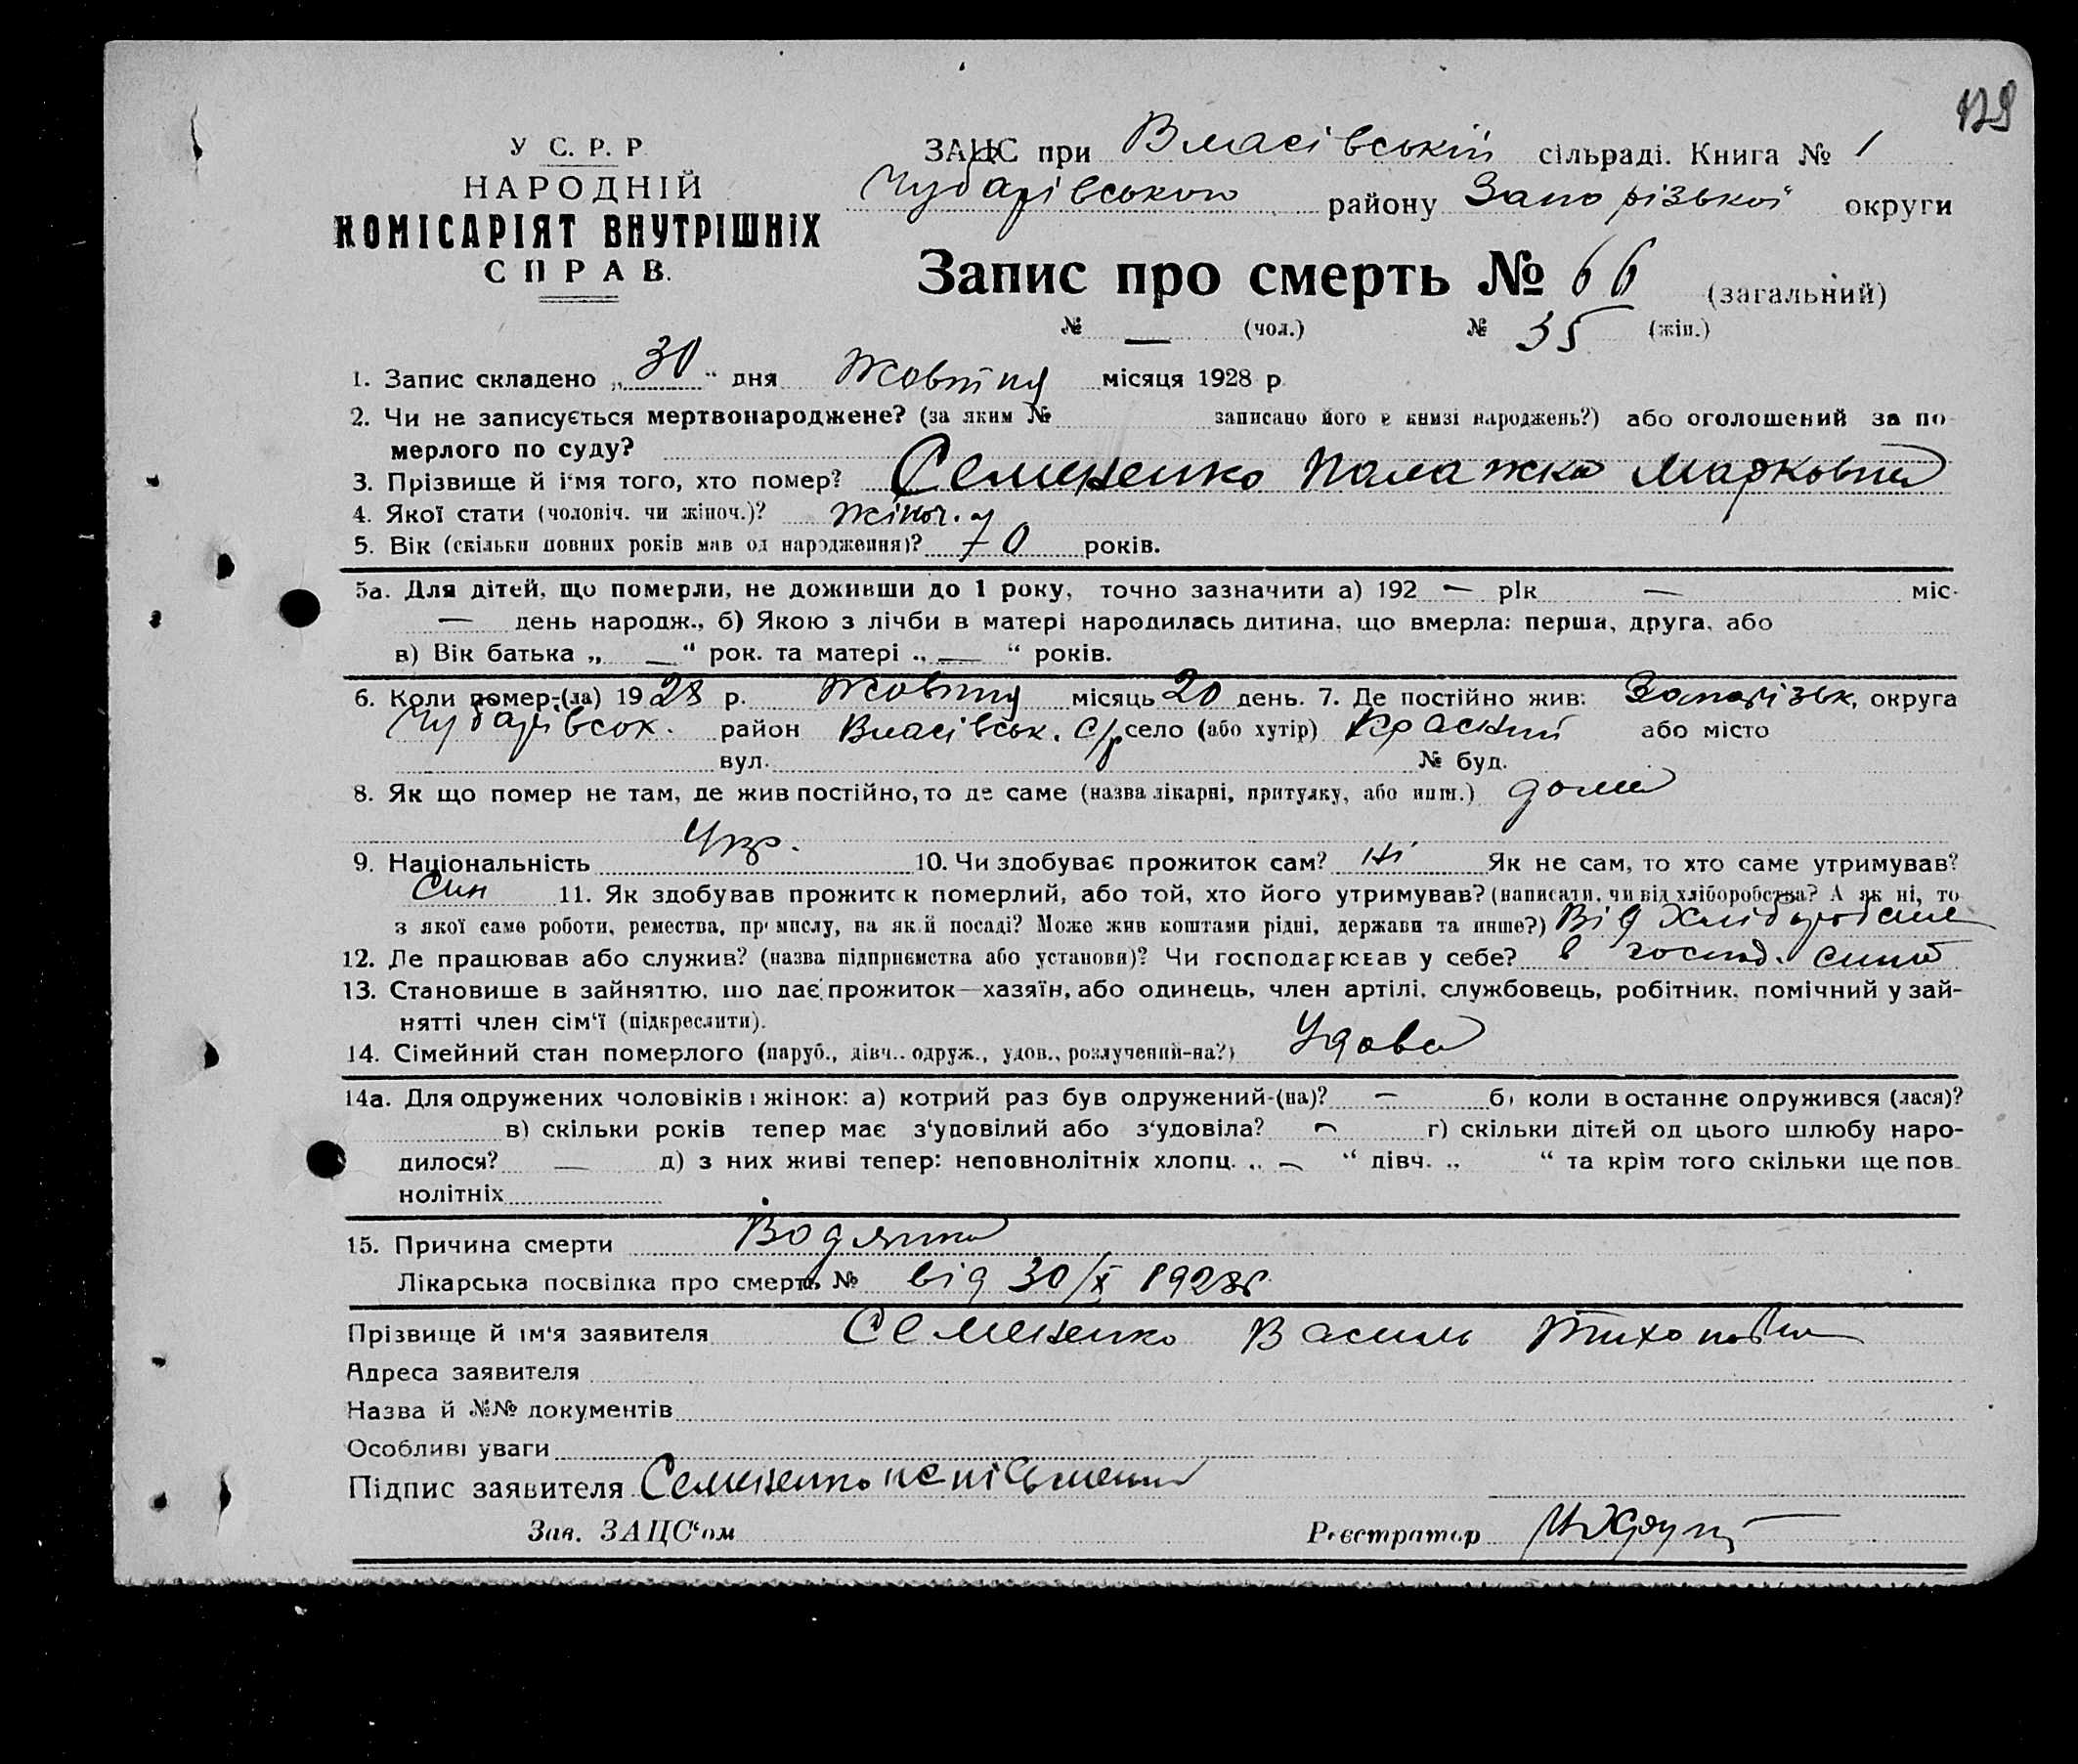 129
У С. Р. Р
НАРОДНІЙ
КОМІСАРІЯТ ВНУТРІШНІХ
СПРАВ.
ЗАЦС при Власівській сільраді. Книга № 1
Чубарівського району Запорізької округи
Запис про смерть № 66 (загальний)
№ — (чол.) № 35 (жін.)
1. Запис складено „30“ дня Жовтня місяця 1928 р.
2. Чи не записується мертвонароджене? (за яким № записано його в книзі народжень?) або оголошений за по
мерлого по суду?
3. Прізвище й ім'я того, хто помер? Семененко Палажка Марковна
4. Якої стати (чоловіч. чи жіноч.)? жіноч.
5. Вік (скільки повних років мав од народження)? 70 років.
5а. Для дітей, що померли, не доживши до 1 року, точно зазначити а) 192 — рік — міс.
— день народж., б) Якою з лічби в матері народилась дитина, що вмерла: перша, друга, або
в) Вік батька „ — “ рок. та матері „ — “ років.
6. Коли помер-(ла) 1928 р. Жовтня місяць 20 день. 7. Де постійно жив: Запорізьк, округа
Чубарівськ. район Власівськ. с/р село (або хутір) Красний або місто
вул. № буд.
8. Як що помер не там, де жив постійно, то де саме (назва лікарні, притулку, або инш.) дома
9. Національність Укр. 10. Чи здобуває прожиток сам? Ні Як не сам, то хто саме утримував?
Син 11. Як здобував прожиток померлий, або той, хто його утримував? (написати, чи від хліборобства? А як ні, то
з якої саме роботи, ремества, промислу, на якій посаді? Може жив коштами рідні, держави та инше?) Від
12. Де працював або служив? (назва підприємства або установи)? Чи господарював у себе? в господ. сина
13. Становише в зайняттю, що дає прожиток—хазяїн, або одинець, член артілі, службовець, робітник, помічний у зай-
нятті член сім'ї (підкреслити).
14. Сімейний стан померлого (паруб., дівч., одруж., удов., розлучений-на?) Удова
14а. Для одружених чоловіків і жінок: а) котрий раз був одружений-(на)? — б) коли востаннє одружився (лася)?
в) скільки років тепер має з'удовілий або з'удовіла? — г) скільки дітей од цього шлюбу наро-
дилося? — д) з них живі тепер: неповнолітніх хлопц. „ — “ дівч. „ “ та крім того скільки ще пов-
нолітніх
15. Причина смерти Водянка
Лікарська посвідка про смерть № від 30/X 1928р.
Прізвище й ім'я заявителя Семененко Василь
Адреса заявителя
Назва й №№ документів
Особливі уваги
Підпис заявителя Семененко
Зав. ЗАЦС'ом Реєстратор